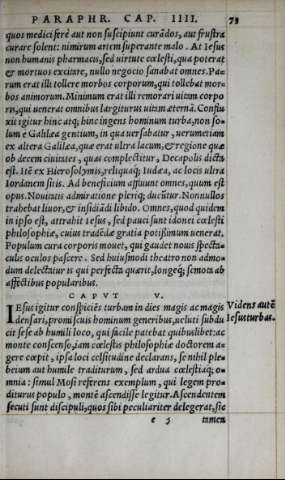 PARAPHR. CAP. IIII. 73
quos medici ferè aut non suscipiunt curãdos, aut frustra
curare solent: nimirum artem superante malo. At Iesus
non humanis pharmacis, sed uirtute cœlesti, qua poterat
& mortuos excitare, nullo negocio sanabat omnes. Pa-
rum erat illi tollere morbos corporum, qui tollebat mor-
bos animorum. Minimum erat illi remorari uitam corpo
ris, qui uenerat omnibus largiturus uitam æternã. Conflu
xit igitur hinc atq; hinc ingens hominum turba, non so-
lum è Galilæa gentium, in qua uersabatur, uerumetiam
ex altera Galilæa, quæ erat ultra lacum, & regione quæ
ob decem ciuitates, quas complectitur, Decapolis dicta
est. Itē ex Hierosolymis, reliquaq; Iudæa, ac locis ultra
Iordanem sitis. Ad beneficium affluunt omnes, quum est
opus. Nouitatis admiratione pleriq; ducūtur. Nonnullos
trahebat liuor, & insidiãdi libido. Omnes, quod quidem
in ipso est, attrahit Iesus, sed pauci sunt idonei cœlesti
philosophiæ, cuius tradēdæ gratia potißimum uenerat.
Populum cura corporis mouet, qui gaudet nouis specta-
culis oculos pascere. Sed huiusmodi theatro non admo-
dum delectatur is qui perfecta quærit, longeq; semota ab
affectibus popularibus.
CAPVT V.
IEsus igitur conspiciēs turbam in dies magis ac magis
densari, promiscuis hominum generibus, ueluti subdu
cit sese ab humili loco, qui facile patebat quibuslibet: ac
monte conscenso, iam cœlestis philosophiæ doctorem a-
gere cœpit, ipsa loci celsitudine declarans, se nihil ple-
beium aut humile traditurum, sed ardua cœlestiaq; o-
mnia: simul Mosi referens exemplum, qui legem pro-
diturus populo, montē ascendisse legitur. Ascendentem
secuti sunt discipuli, quos sibi peculiariter delegerat, sic
e 5 tamen
Videns autē
Iesus turbas.